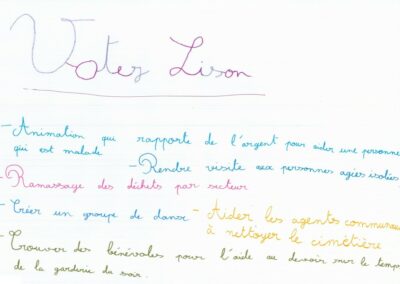 Votez Lison
- Animation qui rapporte de l'argent pour aider une personne
qui est malade - Rendre visite aux personnes agées isolées
- Ramassage des déchets par secteur
- Créer un groupe de danse - Aider les agents communaux
à nettoyer le cimétière
- Trouver des bénévoles pour l'aide au devoir sur le temps
de la garderie du soir.